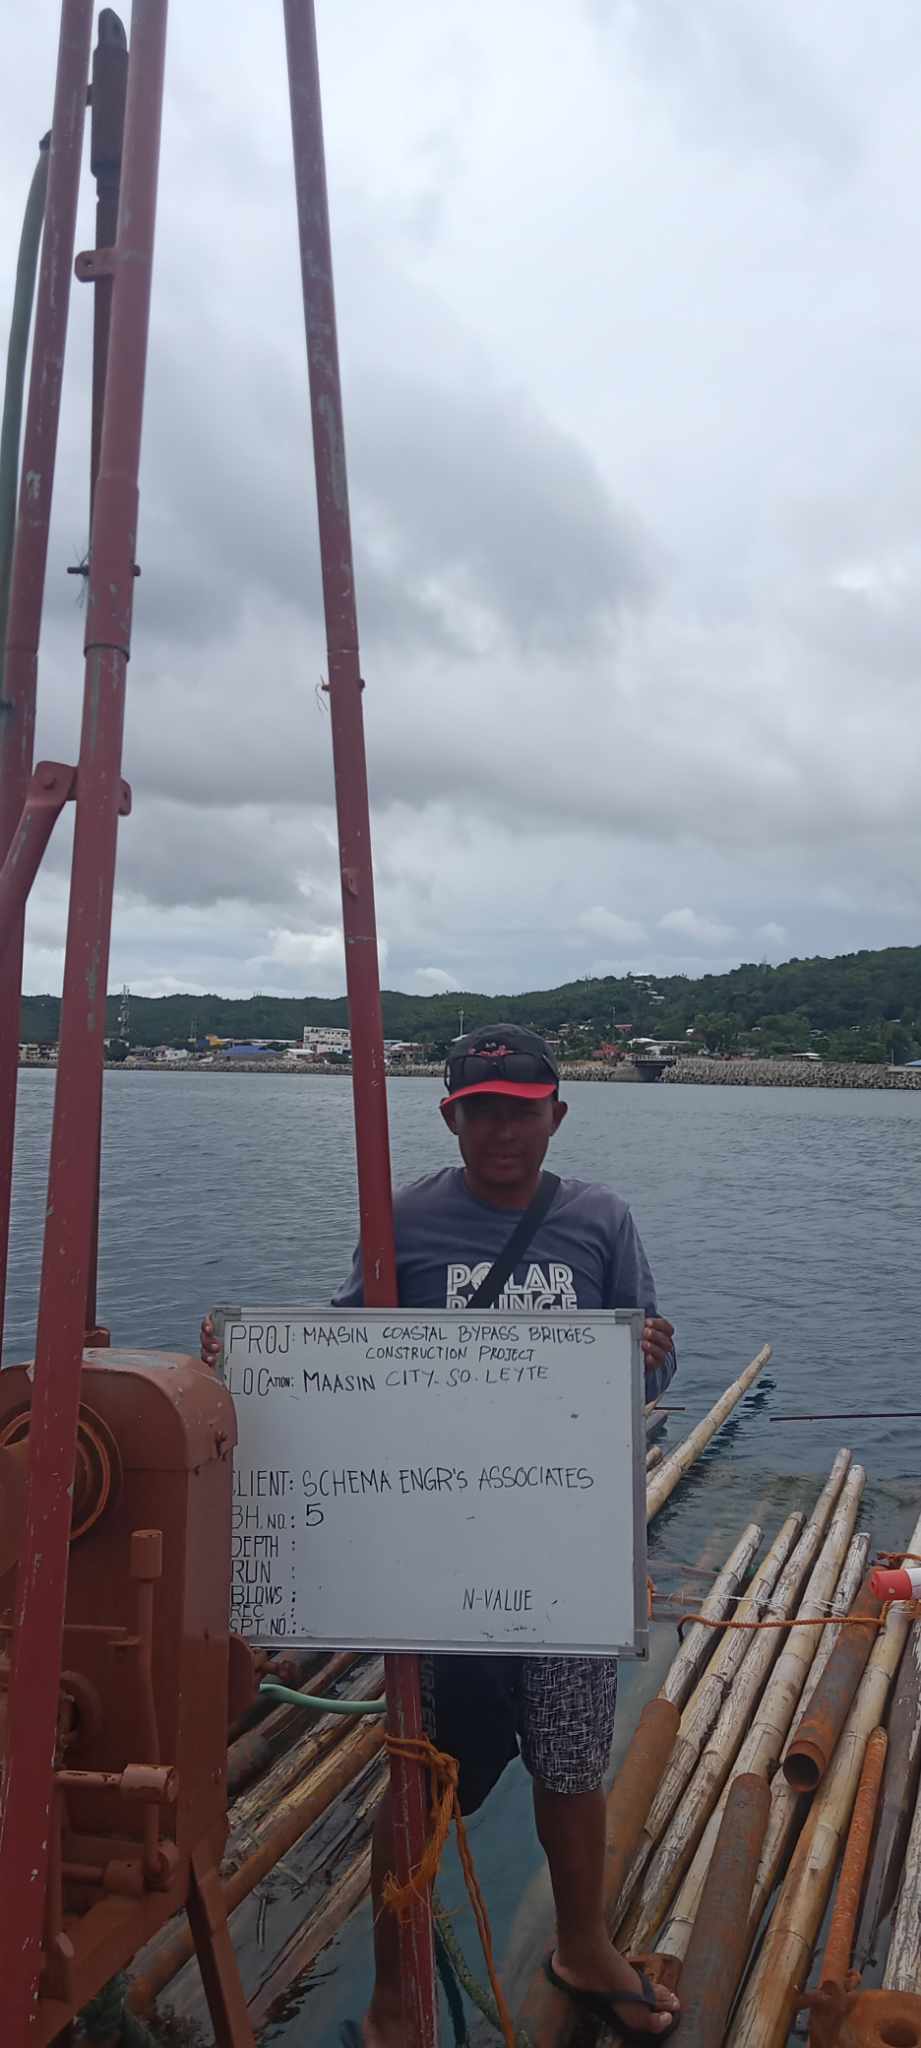 POLAR
PLUNGE
PROJ: MAASIN COASTAL BYPASS BRIDGES
CONSTRUCTION PROJECT
LOCATION: MAASIN CITY. SO. LEYTE
CLIENT: SCHEMA ENGR'S ASSOCIATES
BH. NO.: 5
DEPTH :
RUN :
BLOWS : N-VALUE
REC :
SPT NO.: